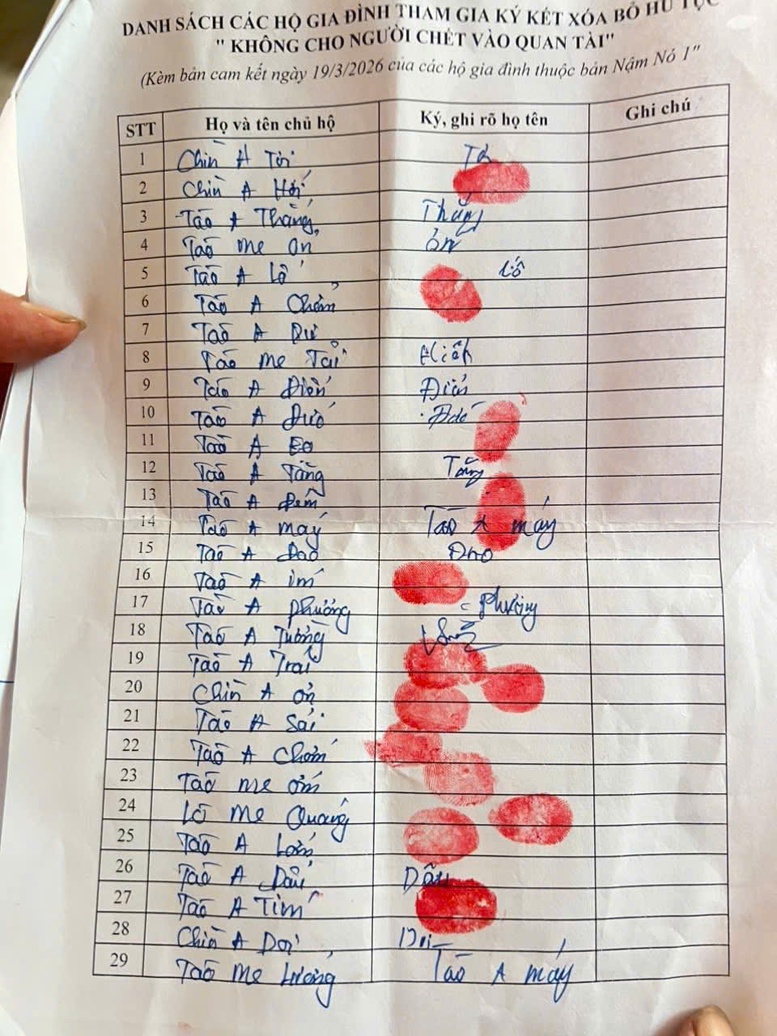 DANH SÁCH CÁC HỘ GIA ĐÌNH THAM GIA KÝ KẾT XÓA BỎ HỦ TỤC
" KHÔNG CHO NGƯỜI CHẾT VÀO QUAN TÀI"
(Kèm bản cam kết ngày 19/3/2026 của các hộ gia đình thuộc bản Nậm Nó 1"
STT Họ và tên chủ hộ Ký, ghi rõ họ tên Ghi chú
1 Chìn A Tời
2 Chìn A
3 Tao A Thắng Thắng
4 Tao Me On ơn
5 Tao A Lồ
6 Tao A Chơm
7 Tao A Dư
8 Tao Me Tại
9 Tao A Điến Điến
10 Tao A
11 Tao A Eo
12 Tao A Tăng Tăng
13 Tao A Đem
14 Tao A máy Tao A máy
15 Tao A Đao Đao
16 Tao A im
17 Tao A phường phường
18 Tao A Tưởng
19 Tao A Trai
20 Chìn A ơn
21 Tao A Sải
22 Tao A Chơm
23 Tao me ơm
24 Lò Me Quang
25 Tao A
26 Tao A Dẩu Dẩu
27 Tao A Tim
28 Chìn A Dơi
29 Tao Me Lương Tao A máy